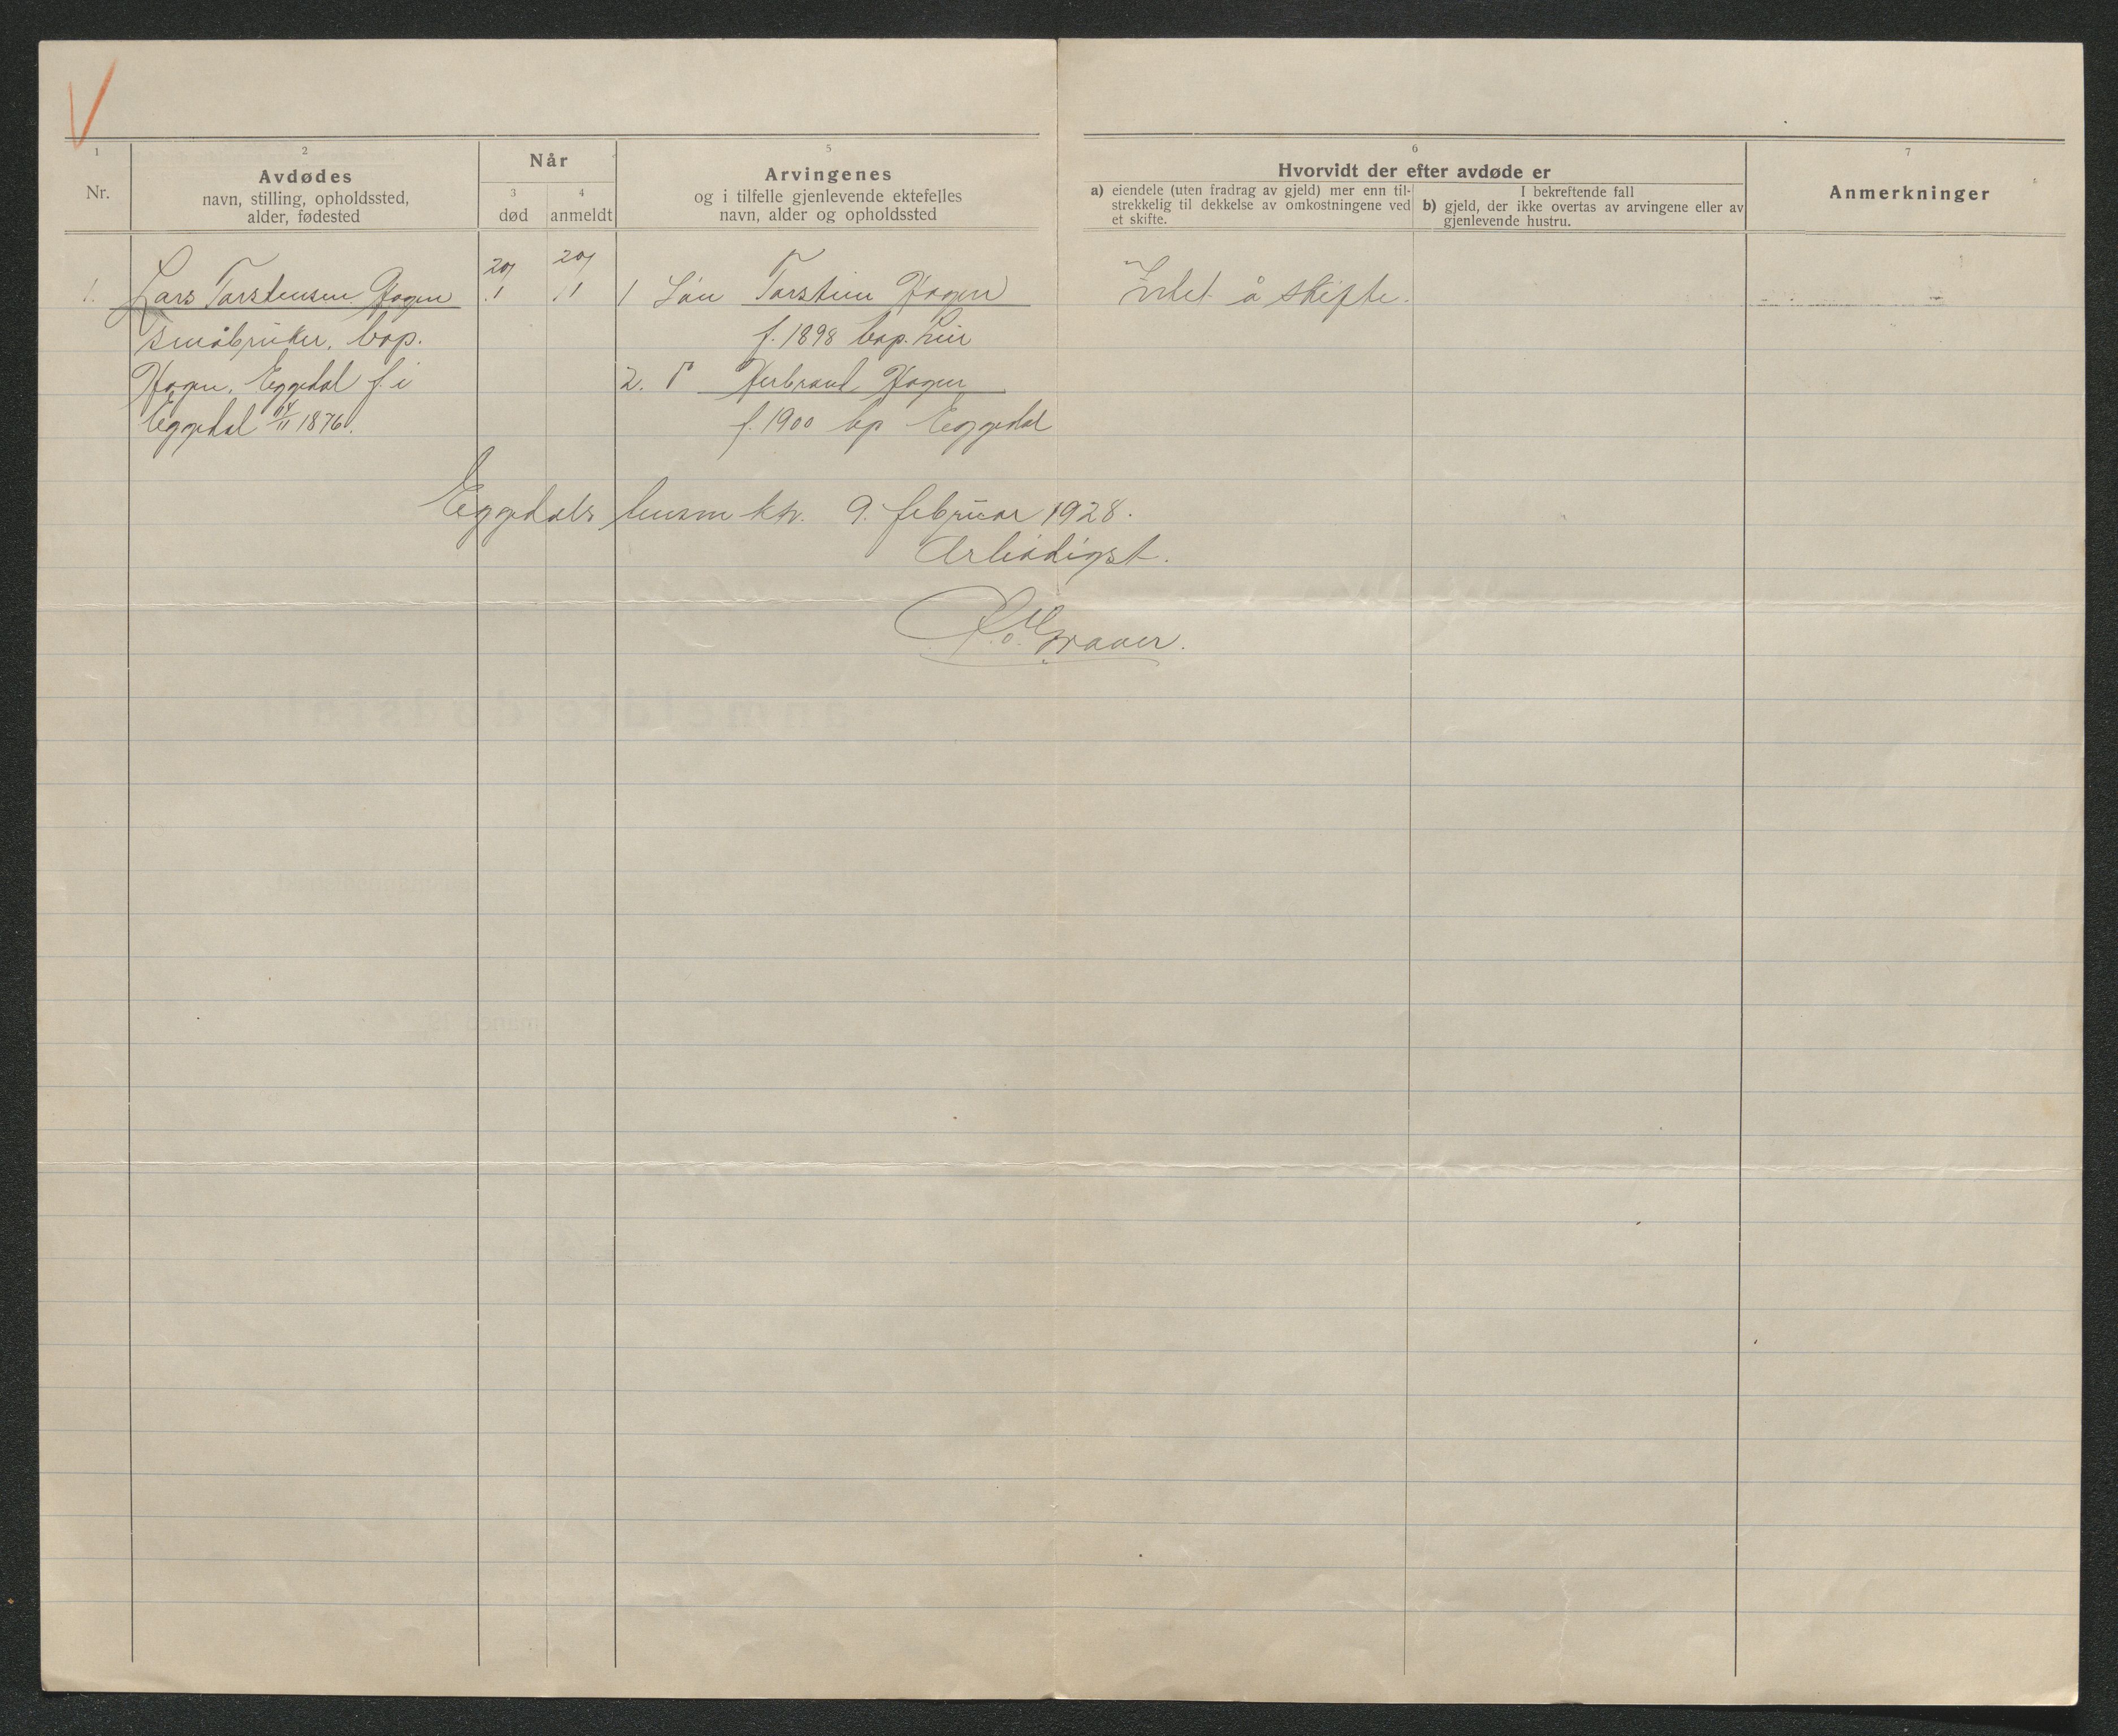 1
Nr.
2
Avdødes
navn, stilling, opholdssted,
alder, fødested
Når
3
død
4
anmeldt
5
Arvingenes
og i tilfelle gjenlevende ektefelles
navn, alder og opholdssted
6
Hvorvidt der efter avdøde er
a) eiendele (uten fradrag av gjeld) mer enn til-
strekkelig til dekkelse av omkostningene ved
et skifte.
I bekreftende fall
b) gjeld, der ikke overtas av arvingene eller av
gjenlevende hustru.
7
Anmerkninger
1. Lars Torstensen Hagen
småbruker, bop.
Hagen, Eggedal f. i
Eggedal 14/11 1876.
20/1
20/1
1 Søn Torstein Hagen
f. 1898 bop. Lier
2. " Herbrand Hagen
f. 1900 bp Eggedal
Intet å skifte.
Eggedals lensm ktr. 9. februar 1928.
Ærbødigst.
Graver.